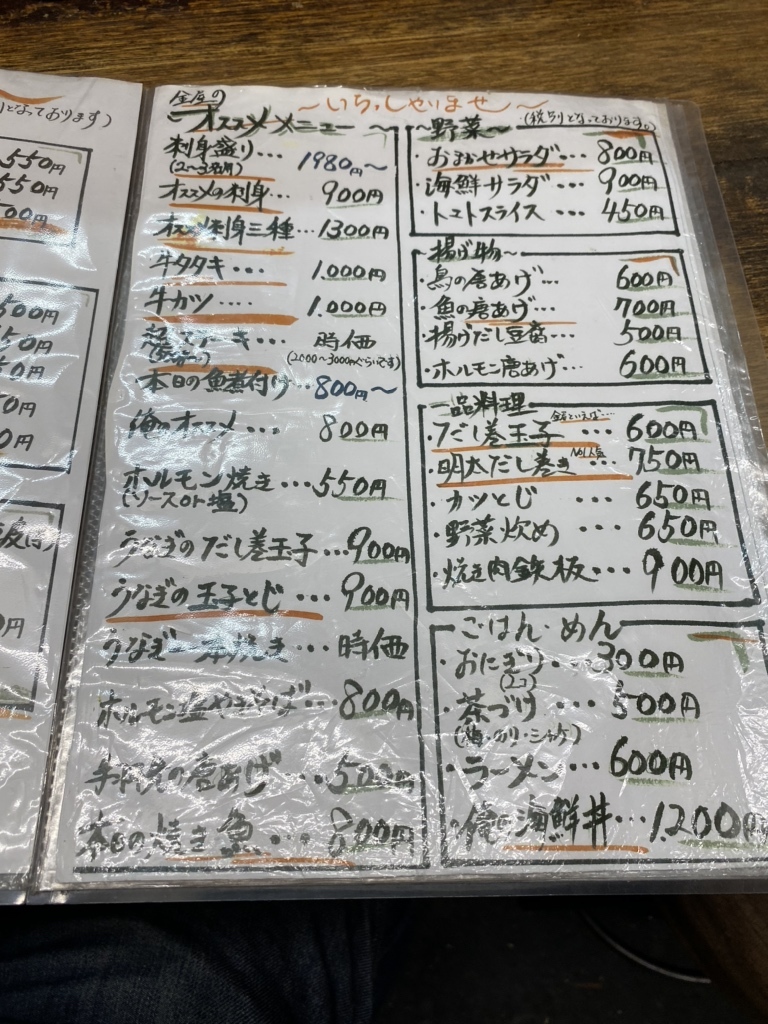 りとなっております)
550円
550円
500円
600円
50円
50円
0円
0円
0円
〜いらっしゃいませ〜
(税別となっております。)
オススメメニュー 〜
刺身盛り… 1980円〜
(2〜3名用)
オススメの刺身… 900円
オススメ刺身三種…1300円
牛タタキ… 1.000円
牛カツ…. 1.000円
ーキ… 時価
(2000〜3000円ぐらいです)
・本日の魚煮付け…800円〜
俺のオススメ 800円
ホルモン焼き…550円
(ソースor塩)
うなぎのだし巻玉子…900円
うなぎの玉子とじ…900円
うなぎ一本焼き…時価
ホルモン塩やきそば…800円
の唐あげ…500円
本日の焼き魚… 800円
〜野菜〜
・おまかせサラダ… 800円
・海鮮サラダ… 900円
・トマトスライス… 450円
揚げ物〜
・鳥の唐あげ… 600円
・魚の唐あげ… 700円
・揚げだし豆腐… 500円
・ホルモン唐あげ… 600円
一品料理
・だし巻玉子 といえば… 600円
・明太だし巻き No1人気… 750円
・カツとじ… 650円
・野菜炒め… 650円
・焼き肉鉄板… 900円
ごはん・めん
・おにぎり… 300円
(2コ)
・茶づけ… 500円
(梅・のり・シャケ)
・ラーメン… 600円
・俺の海鮮丼…1.200円